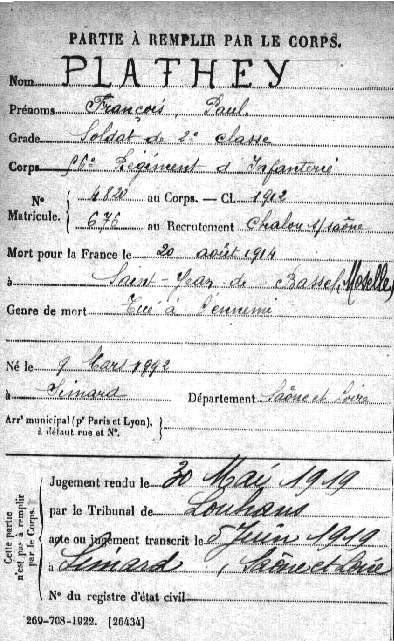 PARTIE À REMPLIR PAR LE CORPS.
Nom PLATHEY
Prénoms François, Paul
Grade Soldat de 2e classe
Corps 56e Régiment d'Infanterie
N° Matricule. 4820 au Corps. — Cl. 1912
676 au Recrutement Chalon s/ Saône
Mort pour la France le 20 août 1914
à Saint-Jean de Bassel (Moselle)
Genre de mort Tué à l'ennemi
Né le 9 Mars 1892
à Simard Département Saône et Loire
Arrt municipal (pr Paris et Lyon),
à défaut rue et N°.
Cette partie
n'est pas à remplir
par le Corps.
Jugement rendu le 30 Mai 1919
par le Tribunal de Louhans
acte ou jugement transcrit le 5 Juin 1919
à Simard, Saône et Loire
N° du registre d'état civil
269-708-1922. [26434]